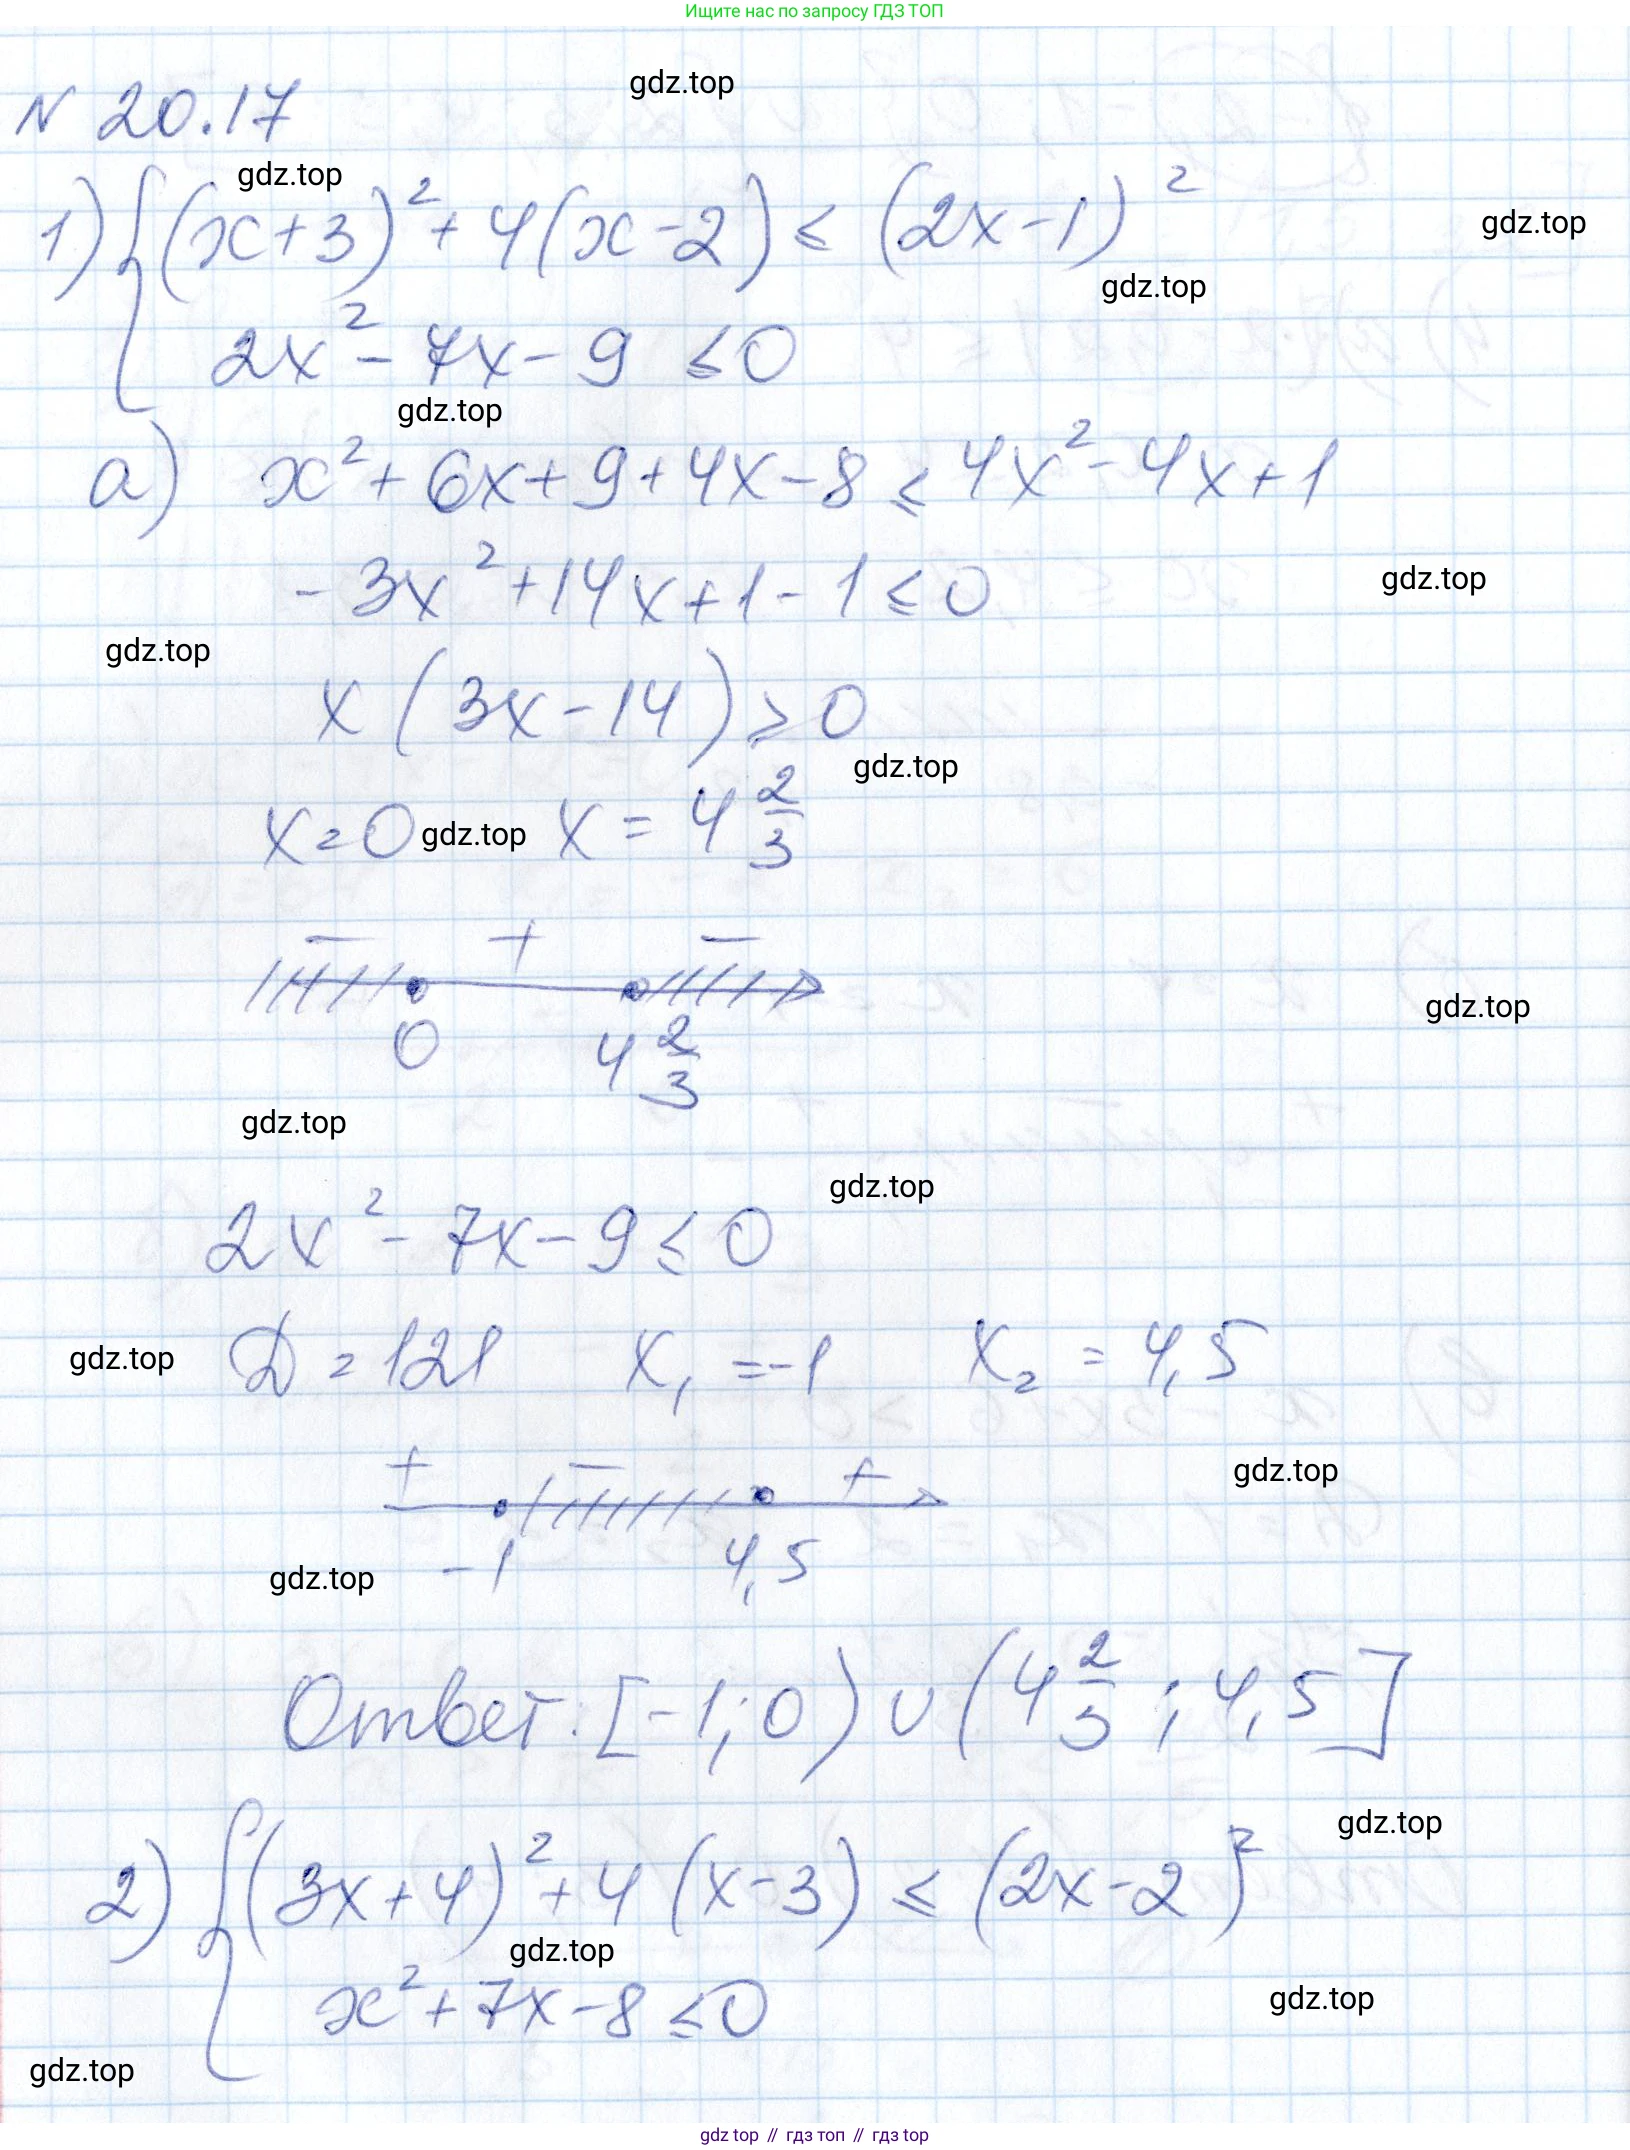 Ищите нас по запросу ГДЗ ТОП
gdz.top
N 20.17
gdz.top
1) { (x+3)² + 4(x-2) ≤ (2x-1)²
gdz.top
gdz.top
2x² - 7x - 9 ≤ 0
gdz.top
а) x² + 6x + 9 + 4x - 8 ≤ 4x² - 4x + 1
-3x² + 14x + 1 - 1 ≤ 0
gdz.top
gdz.top
x (3x - 14) ≥ 0
gdz.top
x = 0 gdz.top x = 4 2/3
- + -
0 4 2/3
gdz.top
gdz.top
gdz.top
2x² - 7x - 9 ≤ 0
gdz.top
D = 121 x₁ = -1 x₂ = 4,5
+ - +
gdz.top
-1 4,5
gdz.top
Ответ: [-1; 0) ∪ (4 2/3 ; 4,5]
gdz.top
2) { (3x+4)² + 4 (x-3) ≤ (2x-2)²
gdz.top
x² + 7x - 8 ≤ 0
gdz.top
gdz.top
gdz top // гдз топ // gdz top